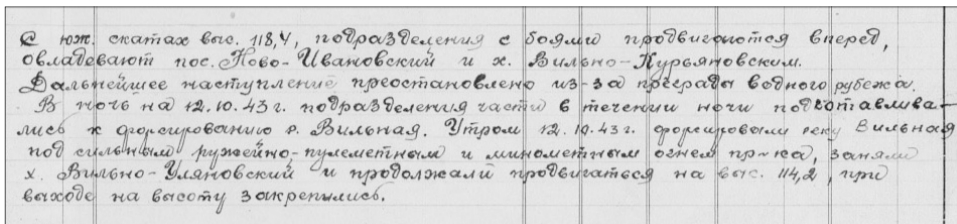 С юж. скатах выс. 118,4, подразделения с боями продвигаются вперед,
овладевают пос. Ново-Ивановский и х. Вильно-Курьяновским.
Дальнейшее наступление преостановлено из-за преграды водного рубежа.
В ночь на 12.10.43 г. подразделения части в течении ночи подготавлива-
лись к форсированию р. Вильная. Утром 12.10.43 г. форсировали реку Вильная
под сильным ружейно-пулеметным и минометным огнем пр-ка, заняли
х. Вильно-Уляновский и продолжали продвигаться на выс. 114,2, при
выходе на высоту закрепились.